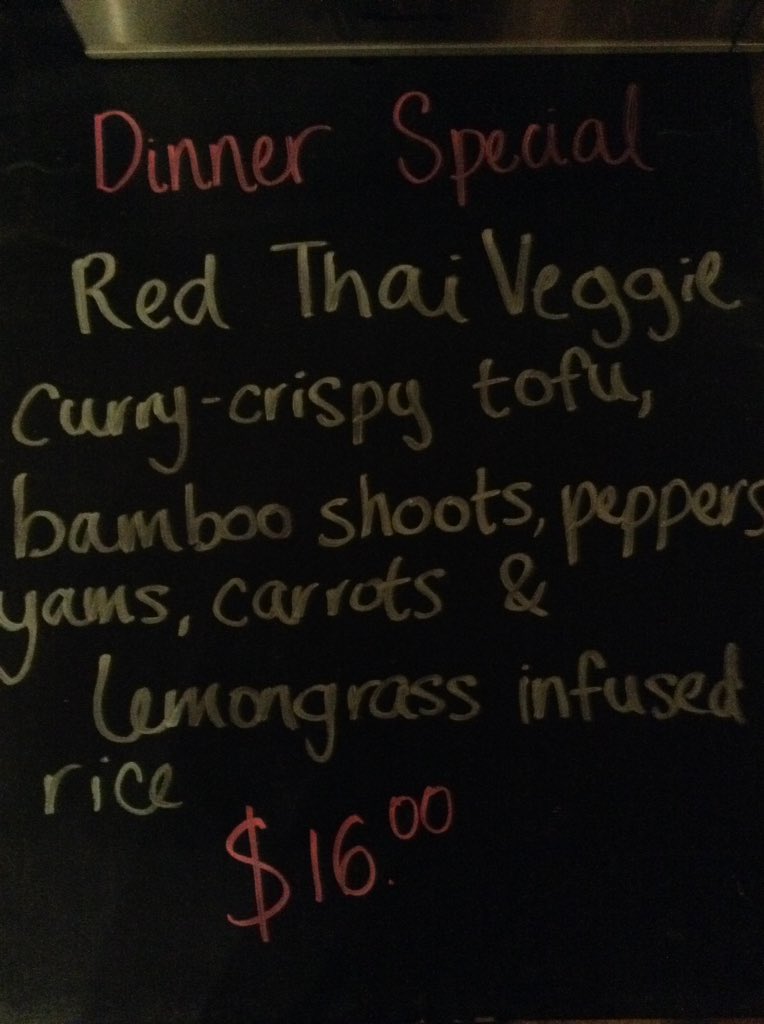 Dinner Special
Red Thai Veggie
Curry-crispy tofu,
bamboo shoots, peppers
yams, carrots &
lemongrass infused
rice
$16.00